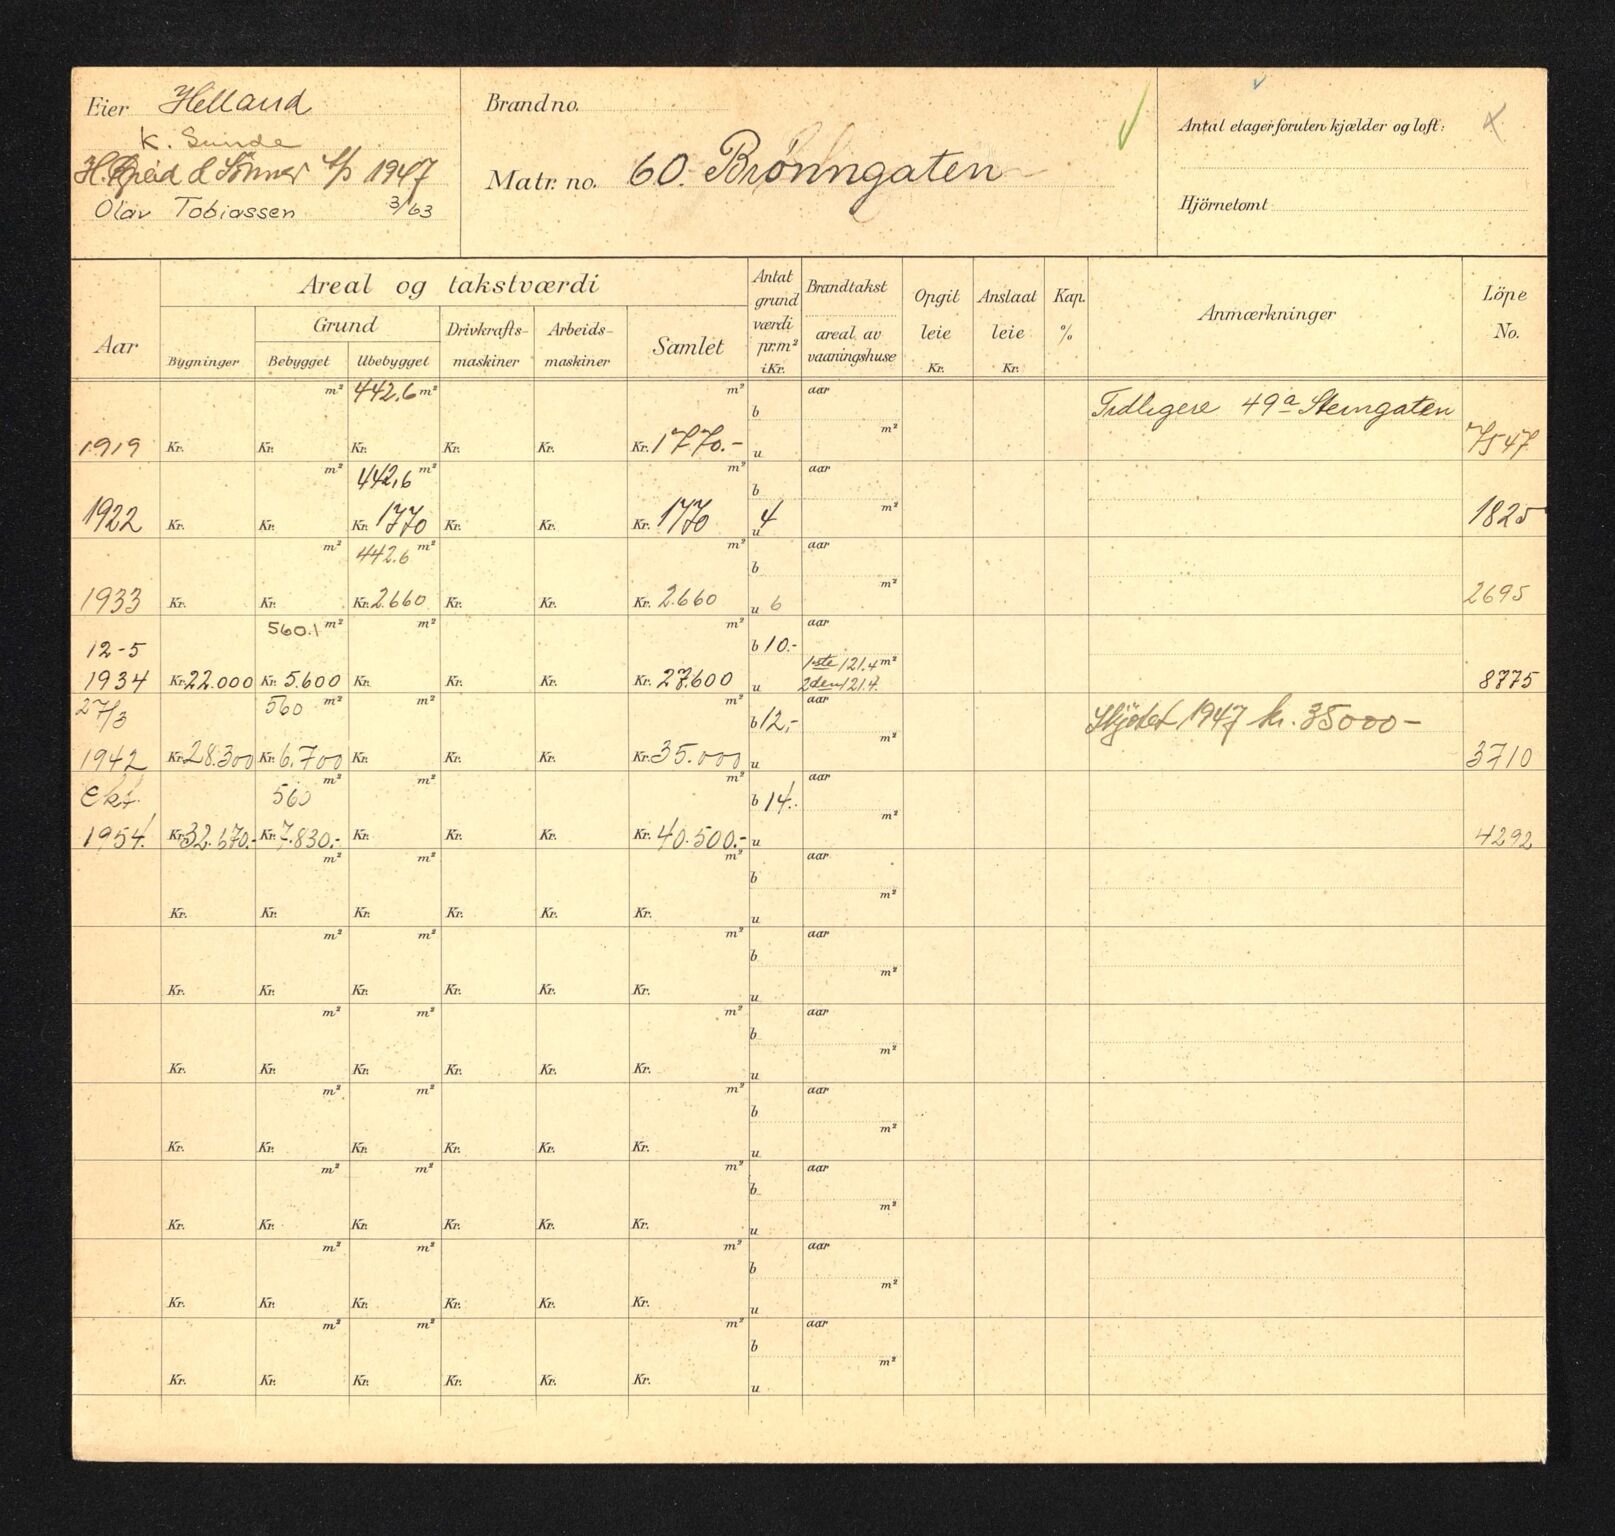 Eier Helland
K. Sunde
& Sönner A/S 1947
Olav Tobiassen 3/63
Brand no.
Matr. no. 60. Brönngaten
Antal etager foruten kjælder og loft: x
Hjörnetomt
Aar
Areal og takstværdi
Bygninger
Grund
Bebygget
Ubebygget
Drivkrafts-
maskiner
Arbeids-
maskiner
Samlet
Antat
grund
værdi
pr. m²
i Kr.
Brandtakst
areal av
vaaningshuse
Opgit
leie
Kr.
Anslaat
leie
Kr.
Kap.
%
Anmærkninger
Löpe
No.
m² 442,6 m² m² b aar Tidligere 49a Steingaten
1919 Kr. Kr. Kr. Kr. Kr. Kr. 1770.- u m² 7547
m² 442,6 m² m² b aar
1922 Kr. Kr. Kr. 1770 Kr. Kr. Kr. 1770 4 u m² 1825
m² 442.6 m² m² b aar
1933 Kr. Kr. Kr. 2660 Kr. Kr. Kr. 2.660 u 6 m² 2695
12-5 560.1 m² m² m² b 10.- aar
1ste 121.4 m²
1934 Kr. 22.000 Kr. 5.600 Kr. Kr. Kr. Kr. 27.600 u 2den 121.4. 8775
27/3 560 m² m² m² b 12,- aar Skjötet 1947 kr. 35000-
1942 Kr. 28.300 Kr. 6.700 Kr. Kr. Kr. Kr. 35.000 u m² 3710
Ekst. 560 m² m² m² b 14.- aar
1954. Kr. 32.670.- Kr. 7.830.- Kr. Kr. Kr. Kr. 40.500.- u m² 4292
m² m² m² b aar
Kr. Kr. Kr. Kr. Kr. Kr. u m²
m² m² m² b aar
Kr. Kr. Kr. Kr. Kr. Kr. u m²
m² m² m² b aar
Kr. Kr. Kr. Kr. Kr. Kr. u m²
m² m² m² b aar
Kr. Kr. Kr. Kr. Kr. Kr. u m²
m² m² m² b aar
Kr. Kr. Kr. Kr. Kr. Kr. u m²
m² m² m² b aar
Kr. Kr. Kr. Kr. Kr. Kr. u m²
m² m² m² b aar
Kr. Kr. Kr. Kr. Kr. Kr. u m²